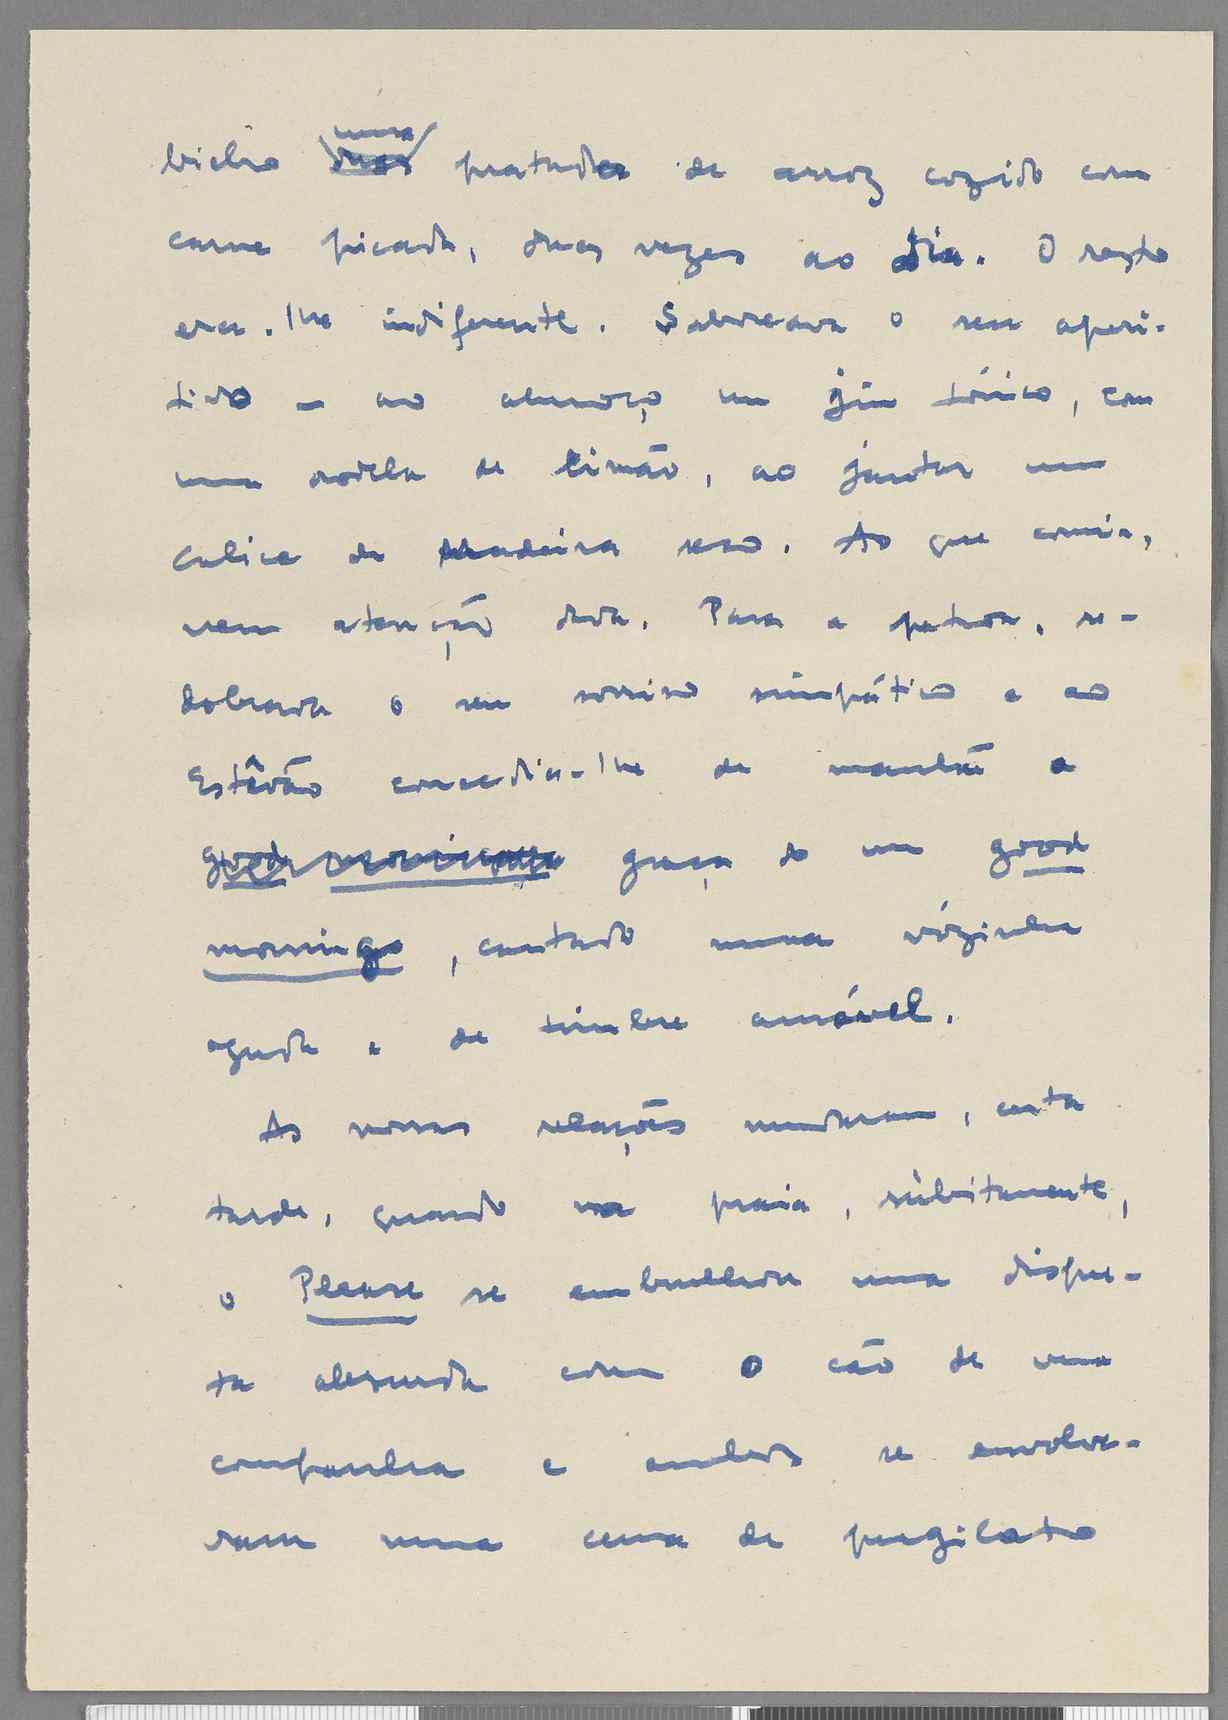 bicho uma pratada de arroz cozido com
carne picada, duas vezes ao dia. O resto
era-lhe indiferente. Saboreava o seu aperi-
tivo – ao almoço um gin tónico, com
uma rodela de limão, ao jantar um
calice de Madeira seco. Ao que comia,
nem atenção dava. Para a patroa, re-
dobrava o seu sorriso simpático e ao
Estêvão concedia-lhe de manhã a
good morning graça de um good
morning, cantado numa vòzinha
aguda e de timbre amável.
As nossas relações mudaram, certa
tarde, quando na praia, sùbitamente,
o Please se embrulhou numa dispu-
ta absurda com o cão de uma
companheira e ambos se envolve-
ram numa cena de pugilato